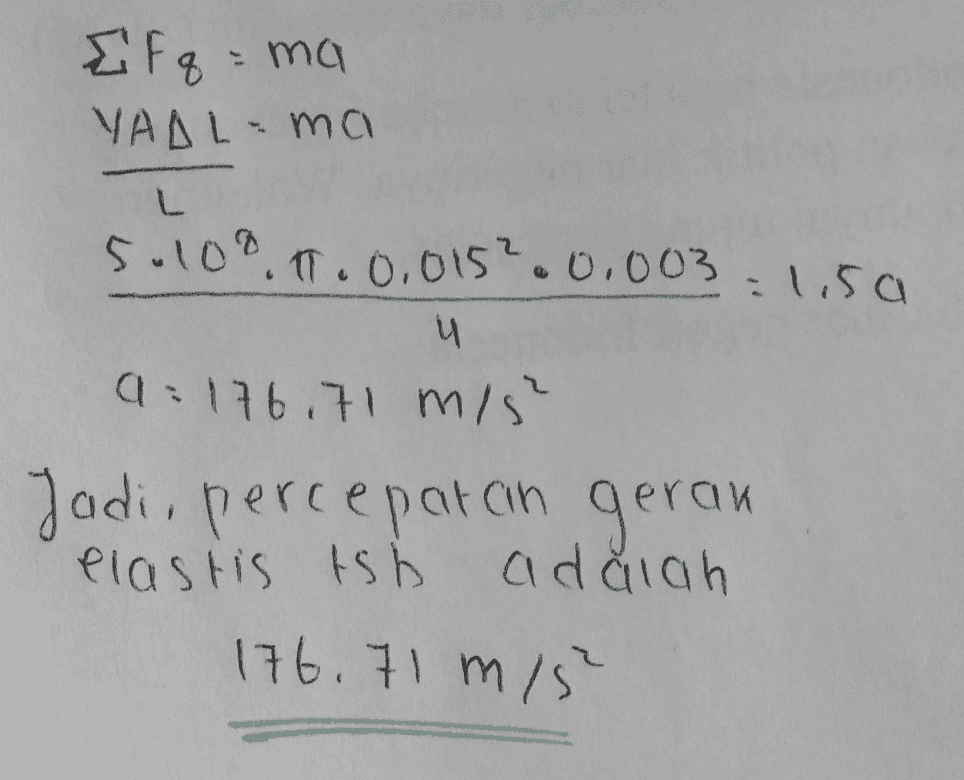 ΣF8 = ma
YAΔL = ma
L
5.10⁸.π.0,015².0,003 = 1,5a
4
a = 176,71 m/s²
Jadi, percepatan gerak
elastis tsb adalah
176.71 m/s²